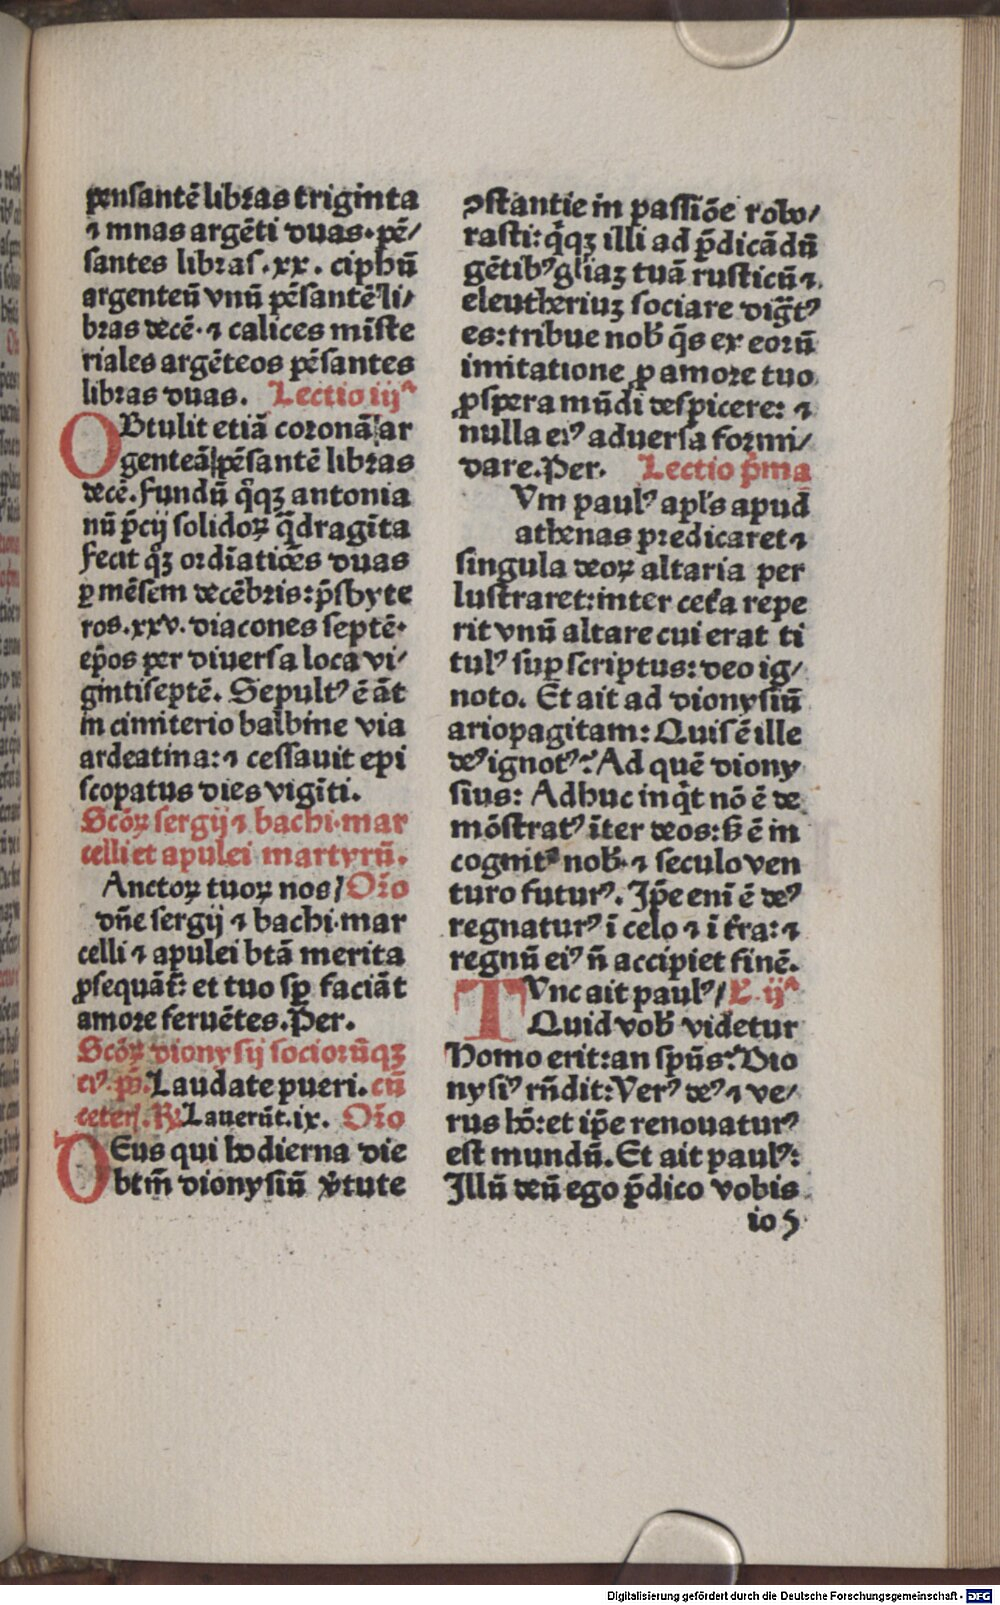 pensantē libras triginta
⁊ mnas argēti duas. pē/
santes libras .xx. ciphū
argenteū vnū pēsantē li/
bras decē. ⁊ calices miste
riales argēteos pēsantes
libras duas. Lectio iijᵃ
OBtulit etiā coronā ar
genteā pēsantē libras
decē. fundū q̊qꝫ antonia
nū p̄cij solidoꝝ q̄dragīta
fecit q̊ꝫ ordīatiōes duas
ꝑ mēsem decēbris: p̄sbyte
ros .xxv. diacones septē.
ep̄os per diuersa loca vi/
gintiseptē. Sepultꝰ ē āt
in cimiterio balbine via
ardeatina: ⁊ cessauit epi
scopatus dies vigīti.
Scōꝝ sergij ⁊ bachi. mar
celli et apulei martyrū.
Anctoꝝ tuoꝝ nos/ Oro
dn̄e sergij ⁊ bachi. mar
celli ⁊ apulei btā merita
ꝓsequāt̄: et tuo sp̄ faciāt
amore feruētes. Per.
Scōꝝ dionysij sociorūqꝫ
eiꝰ. p̄s. Laudate pueri. cū
ceteris. R̸ Lauerūt. ix. Oro
DEus qui hodierna die
btm̄ dionysiū v̄tute
ꝯstantie in passiōe robo/
rasti: q̊qꝫ illi ad p̄dicādū
gētibꝰ gliaꝫ tuā rusticū ⁊
eleutheriuꝫ sociare dig̅tꝰ
es: tribue nob̄ q̄s ex eorū
imitatione ꝓ amore tuo
ꝓspera mūdi despicere: ⁊
nulla eiꝰ aduersa formi/
dare. Per. Lectio p̄ma
Vm paulꝰ apl̄s apud
athenas predicaret ⁊
singula deoꝝ altaria per
lustraret: inter cet̄a repe
rit vnū altare cui erat ti
tulꝰ suꝑ scriptus: deo ig/
noto. Et ait ad dionysiū
ariopagitam: Quis ē ille
deꝰ ignotꝰ: Ad quē diony
sius: Adhuc inq̄t nō ē de
mōstratꝰ īter deos: h̄ ē in
cognitꝰ nob̄. ⁊ seculo ven
turo futurꝰ. Ip̄e enī ē deꝰ
regnaturꝰ ī celo ⁊ ī t̄ra: ⁊
regnū eiꝰ n̄ accipiet finē.
TVnc ait paulꝰ/ L. ijᵃ
Quid vob̄ videtur
homo erit: an sp̄us: Dio
nysiꝰ rn̄dit: Verꝰ deꝰ ⁊ ve/
rus hō: et ip̄e renouaturꝰ
est mundū. Et ait paulꝰ:
Illū deū ego p̄dico vobis
io 5
Digitalisierung gefördert durch die Deutsche Forschungsgemeinschaft - DFG